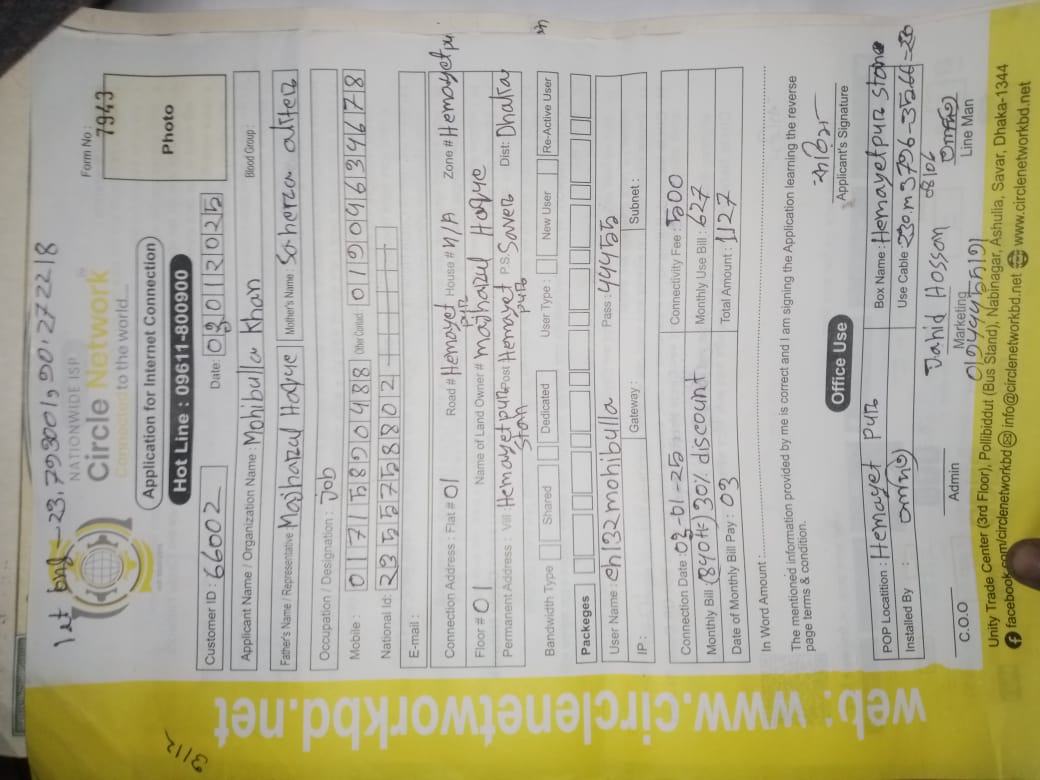 3112
let long - 23.793001, 90.272218
NATIONWIDE ISP
Circle Network
Connected to the world...
Form No:
7943
Application for Internet Connection
Hot Line : 09611-800900
Photo
Customer ID : 66002 Date: 03012025
Applicant Name / Organization Name : Mohibulla Khan Blood Group:
Father's Name / Representative Mojharul Haque Mother's Name:
Occupation / Designation : Job
Mobile : 01715890488 Other Contact 01909634678
National Id: 2355758802
E-mail :
Connection Address : Flat # 01 Road # Hemayet pur House # N/A Zone # Hemayet pur
Floor # 01 Name of Land Owner # Mojharul Haque
Permanent Address : Vill : Hemayetpur Stan Post Hemayet pur P.S. Saver Dist: Dhaka
Bandwidth Type Shared Dedicated User Type : New User Re-Active User
Packeges
User Name : ch132mohibulla Pass : 444555
IP : Gateway : Subnet :
Connection Date : 03-01-25 Connectivity Fee : 500
Monthly Bill : 30% discount Monthly Use Bill : 627
Date of Monthly Bill Pay : 03 Total Amount : 1127
In Word Amount :
The mentioned information provided by me is correct and I am signing the Application learning the reverse
page terms & condition.
Applicant's Signature
Office Use
POP Locatition : Hemayet Pur Box Name : Hemayetpur Stane
Installed By : Use Cable 230.m 3796-3566=230
Jahid Hossan 08/06
01944455191
C.O.O Admin Marketing Line Man
Unity Trade Center (3rd Floor), Pollibiddut (Bus Stand), Nabinagar, Ashulia, Savar, Dhaka-1344
facebook.com/circlenetworkbd info@circlenetworkbd.net www.circlenetworkbd.net
web: www.circlenetworkbd.net